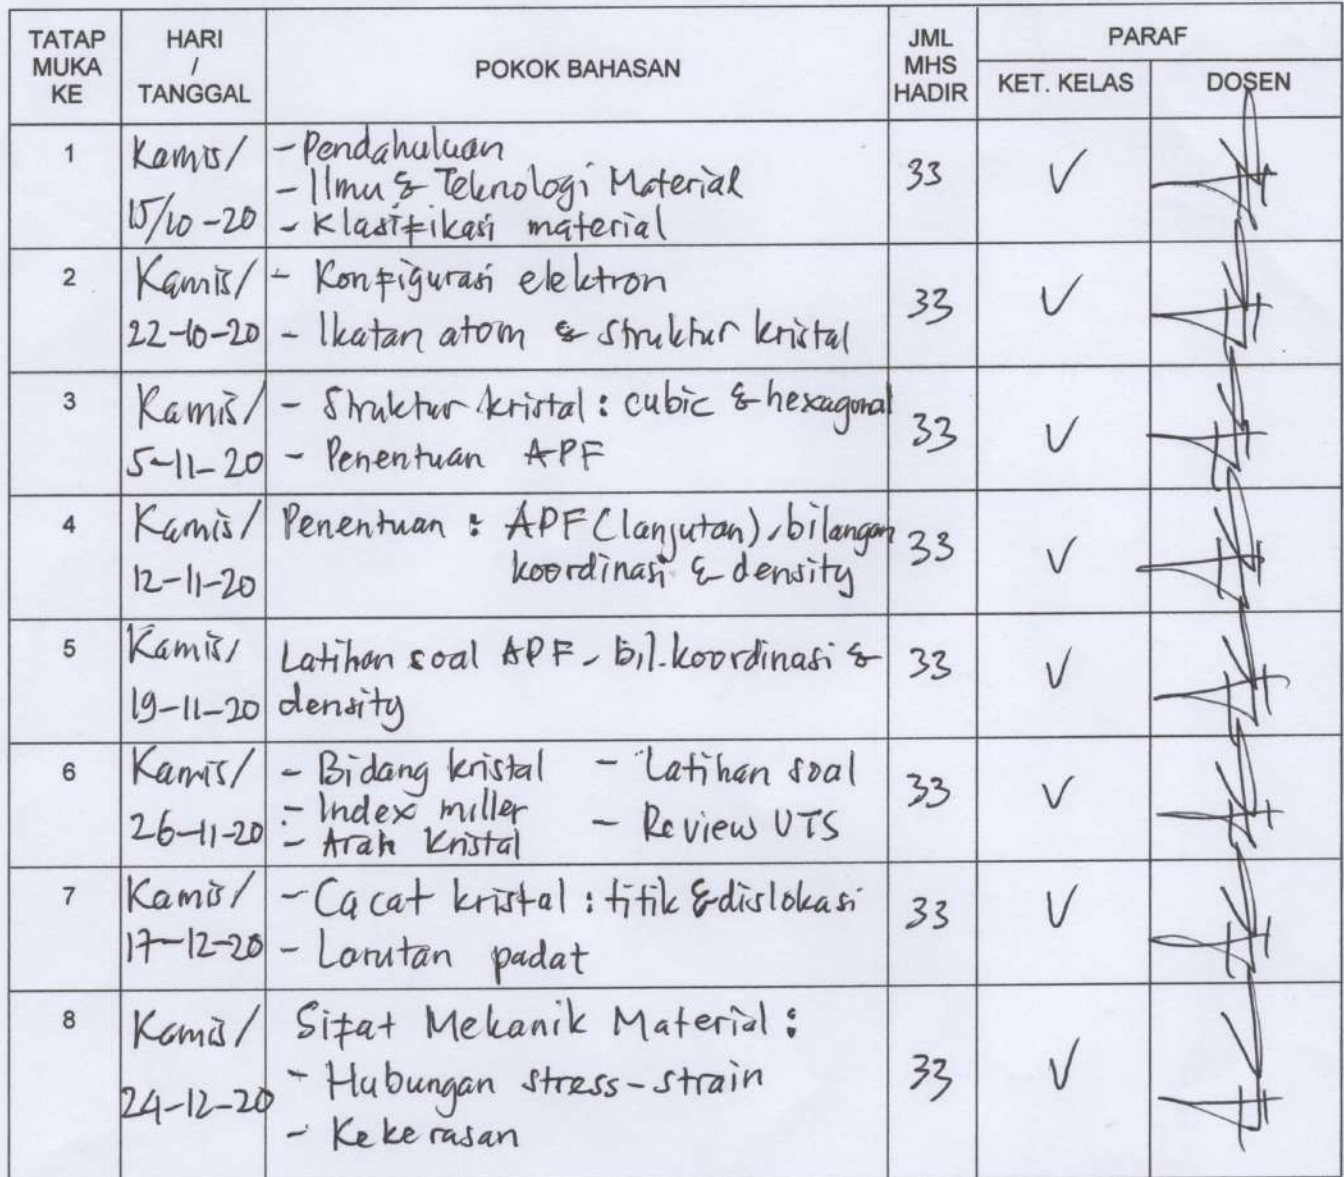 TATAP MUKA KE
HARI / TANGGAL
POKOK BAHASAN
JML MHS HADIR
PARAF
KET. KELAS
DOSEN
1
Kamis/
15/10-20
- Pendahuluan
- Ilmu & Teknologi Material
- Klasifikasi material
33
2
Kamis/
22-10-20
- Konfigurasi elektron
- Ikatan atom & struktur kristal
33
3
Kamis/
5-11-20
- Struktur kristal : cubic & hexagonal
- Penentuan APF
33
4
Kamis/
12-11-20
Penentuan : APF (lanjutan), bilangan
koordinasi & density
33
5
Kamis/
19-11-20
Latihan soal APF, bil. koordinasi &
density
33
6
Kamis/
26-11-20
- Bidang kristal
- Index miller
- Arah Kristal
- Latihan soal
- Review UTS
33
7
Kamis/
17-12-20
- Cacat kristal : titik & dislokasi
- Larutan padat
33
8
Kamis/
24-12-20
Sifat Mekanik Material :
- Hubungan stress-strain
- Kekerasan
33